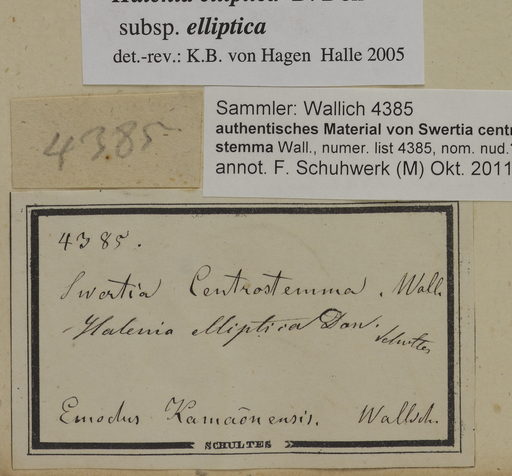 subsp. elliptica
det.-rev.: K.B. von Hagen Halle 2005
4385
Sammler: Wallich 4385
authentisches Material von Swertia centr
stemma Wall., numer. list 4385, nom. nud.
annot. F. Schuhwerk (M) Okt. 2011
4385.
Swertia Centrostemma. Wall.
Halenia elliptica Don.
Schultes
Emodus Kamaonensis. Wallich.
SCHULTES